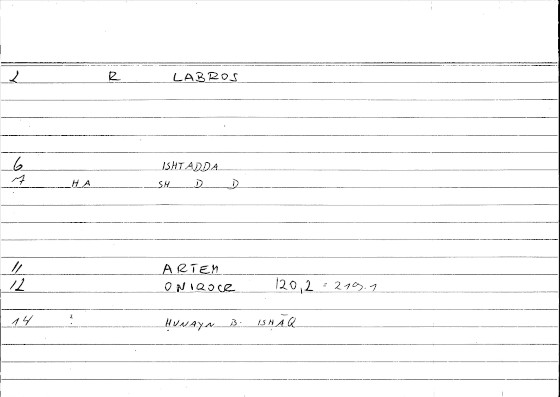 2 R LABROS
6 ISHTADDA
7 HA SH D D
11 ARTEM
12 ONIROCR 120,2 = 219.1
14 : ḤUNAYN B. ISḤĀQ